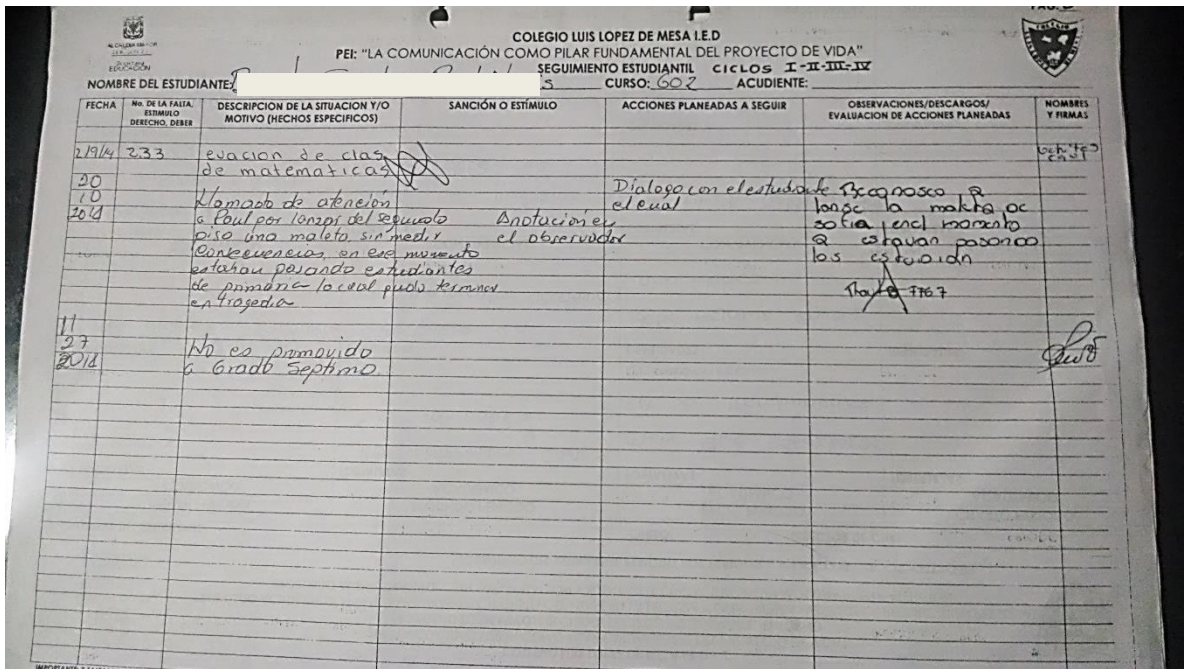 COLEGIO LUIS LOPEZ DE MESA I.E.D
PEI: "LA COMUNICACIÓN COMO PILAR FUNDAMENTAL DEL PROYECTO DE VIDA"
EDUCACIÓN
SEGUIMIENTO ESTUDIANTIL CICLOS I-II-III-IV
NOMBRE DEL ESTUDIANTE: CURSO: 602 ACUDIENTE:
FECHA
No. DE LA FALTA, ESTIMULO DERECHO, DEBER
DESCRIPCION DE LA SITUACION Y/O
MOTIVO (HECHOS ESPECIFICOS)
SANCIÓN O ESTÍMULO
ACCIONES PLANEADAS A SEGUIR
OBSERVACIONES/DESCARGOS/
EVALUACION DE ACCIONES PLANEADAS
NOMBRES
Y FIRMAS
2/9/14 233 evacion de clas
de matematicas
20
10
2014
Llamado de atención
a Paul por lanzar del segundo
piso una maleta, sin medir
Consecuencias, en ese momento
estaban pasando estudiantes
de primaria lo cual pudo terminar
en tragedia
Anotación en
el observador
Dialogo con el estudiante
el cual
la
momento
estavan
los
11
27
2014
No es promovido
a Grado Septimo